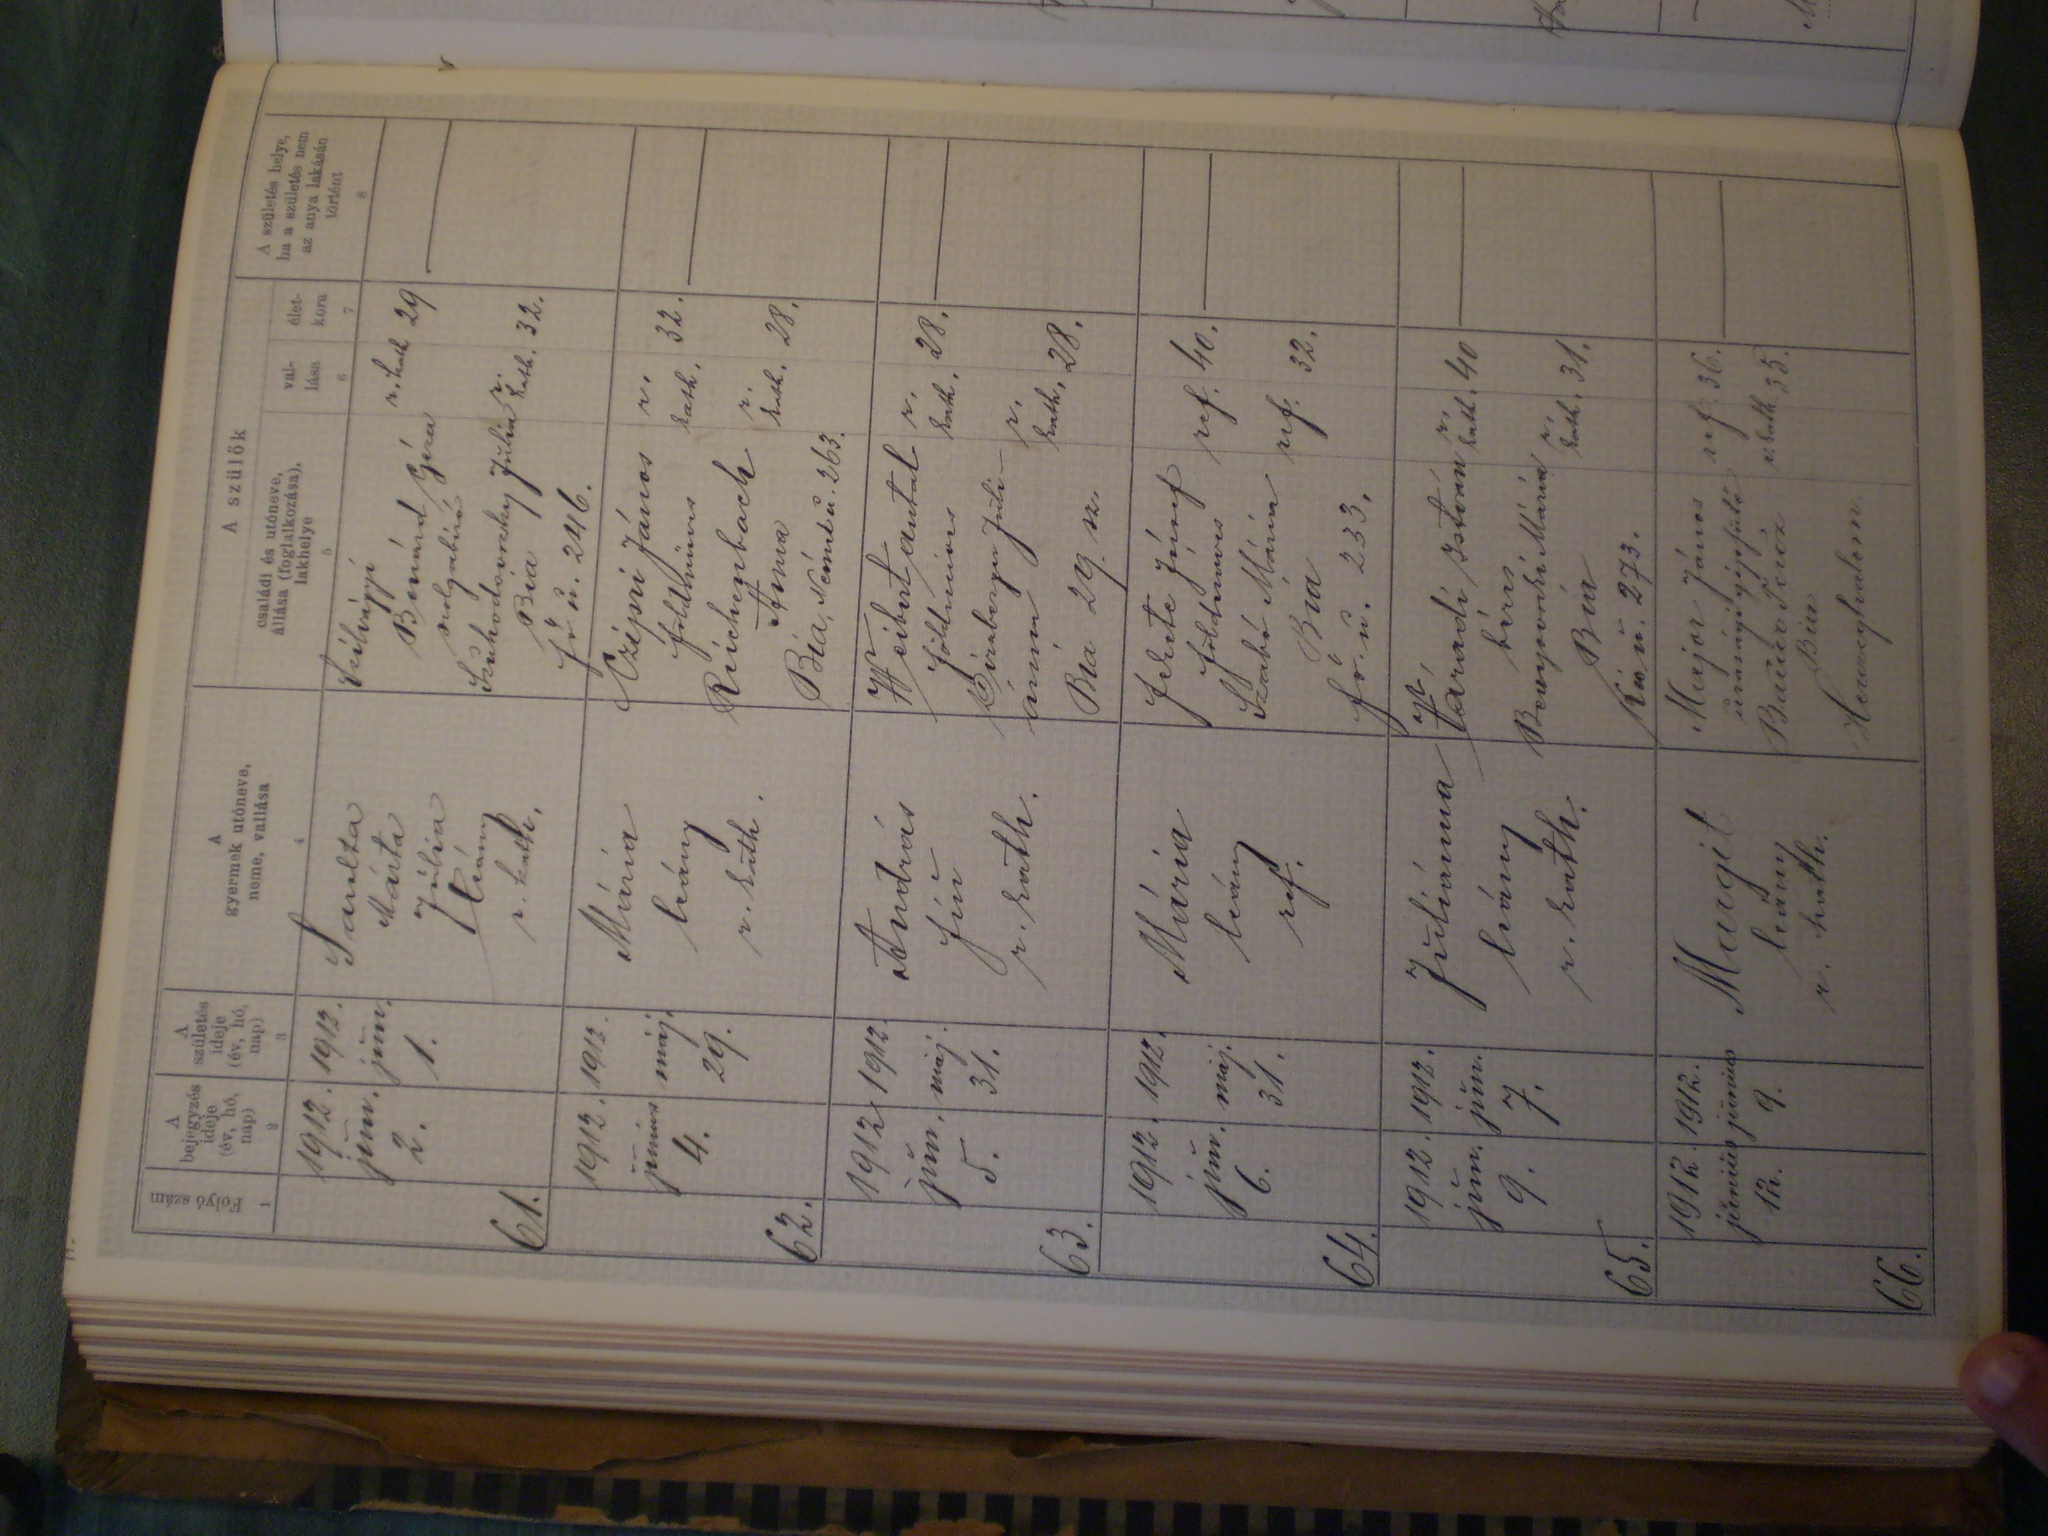 Folyó szám
A bejegyzés ideje (év, hó, nap)
A születés ideje (év, hó, nap)
A gyermek utóneve, neme, vallása
A szülők
családi és utóneve, állása (foglalkozása), lakhelye
vallása
életkora
A születés helye, ha a születés nem az anya lakásán történt
1 2 3 4 5 6 7 8
61.
1912. jún. 2.
1912. jún. 1.
Sarolta
Márta
Júlia
leány
r. kath.
Szilvágyi
Bernárd Géza
szolgabíró
r. kath. 29
Szuhodovszky Júlia
r. kath. 32.
Bia
fő u. 246.
62.
1912. június 4.
1912. máj. 29.
Mária
leány
r. kath.
Czépni János
földmíves
r. kath. 32.
Reichenbach
Anna
r. kath. 28.
Bia, Német u. 263.
63.
1912. jún. 5.
1912. máj. 31.
András
fiú
r. kath.
Weibert Antal
földmíves
r. kath. 28.
Juli-
ánna
r. kath. 28.
Bia 29. sz.
64.
1912. jún. 6.
1912. máj. 31.
Mária
leány
ref.
Fekete József
földmíves
ref. 40.
Szabó Mária
ref. 32.
Bia
fő u. 233.
65.
1912. jún. 9.
1912. jún. 7.
Júliánna
leány
r. kath.
Váradi István
béres
r. kath. 40
Mária
r. kath. 31.
Bia
Kis u. 273.
66.
1912. június 12.
1912. június 9.
Margit
leány
r. kath.
Major János
urasági gépfűtő
ref. 36.
Bauer Teréz
r. kath. 35.
Bia
Herczeghalom